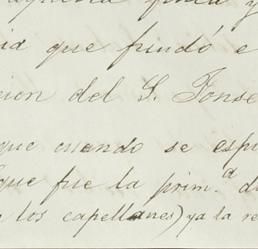 aquella finca y
que fundó e
cion del S. Fonse
que cuando se espi
que fue la prim.ª d
los capellanes) ya la re